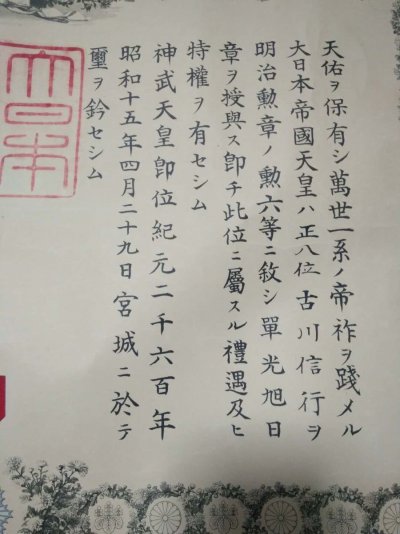 天佑ヲ保有シ萬世一系ノ帝祚ヲ踐メル
大日本帝國天皇ハ正八位古川信行ヲ
明治勲章ノ勲六等ニ敍シ單光旭日
章ヲ授與ス卽チ此位ニ屬スル禮遇及ヒ
特權ヲ有セシム
神武天皇卽位紀元二千六百年
昭和十五年四月二十九日宮城ニ於テ
璽ヲ鈐セシム
大日本